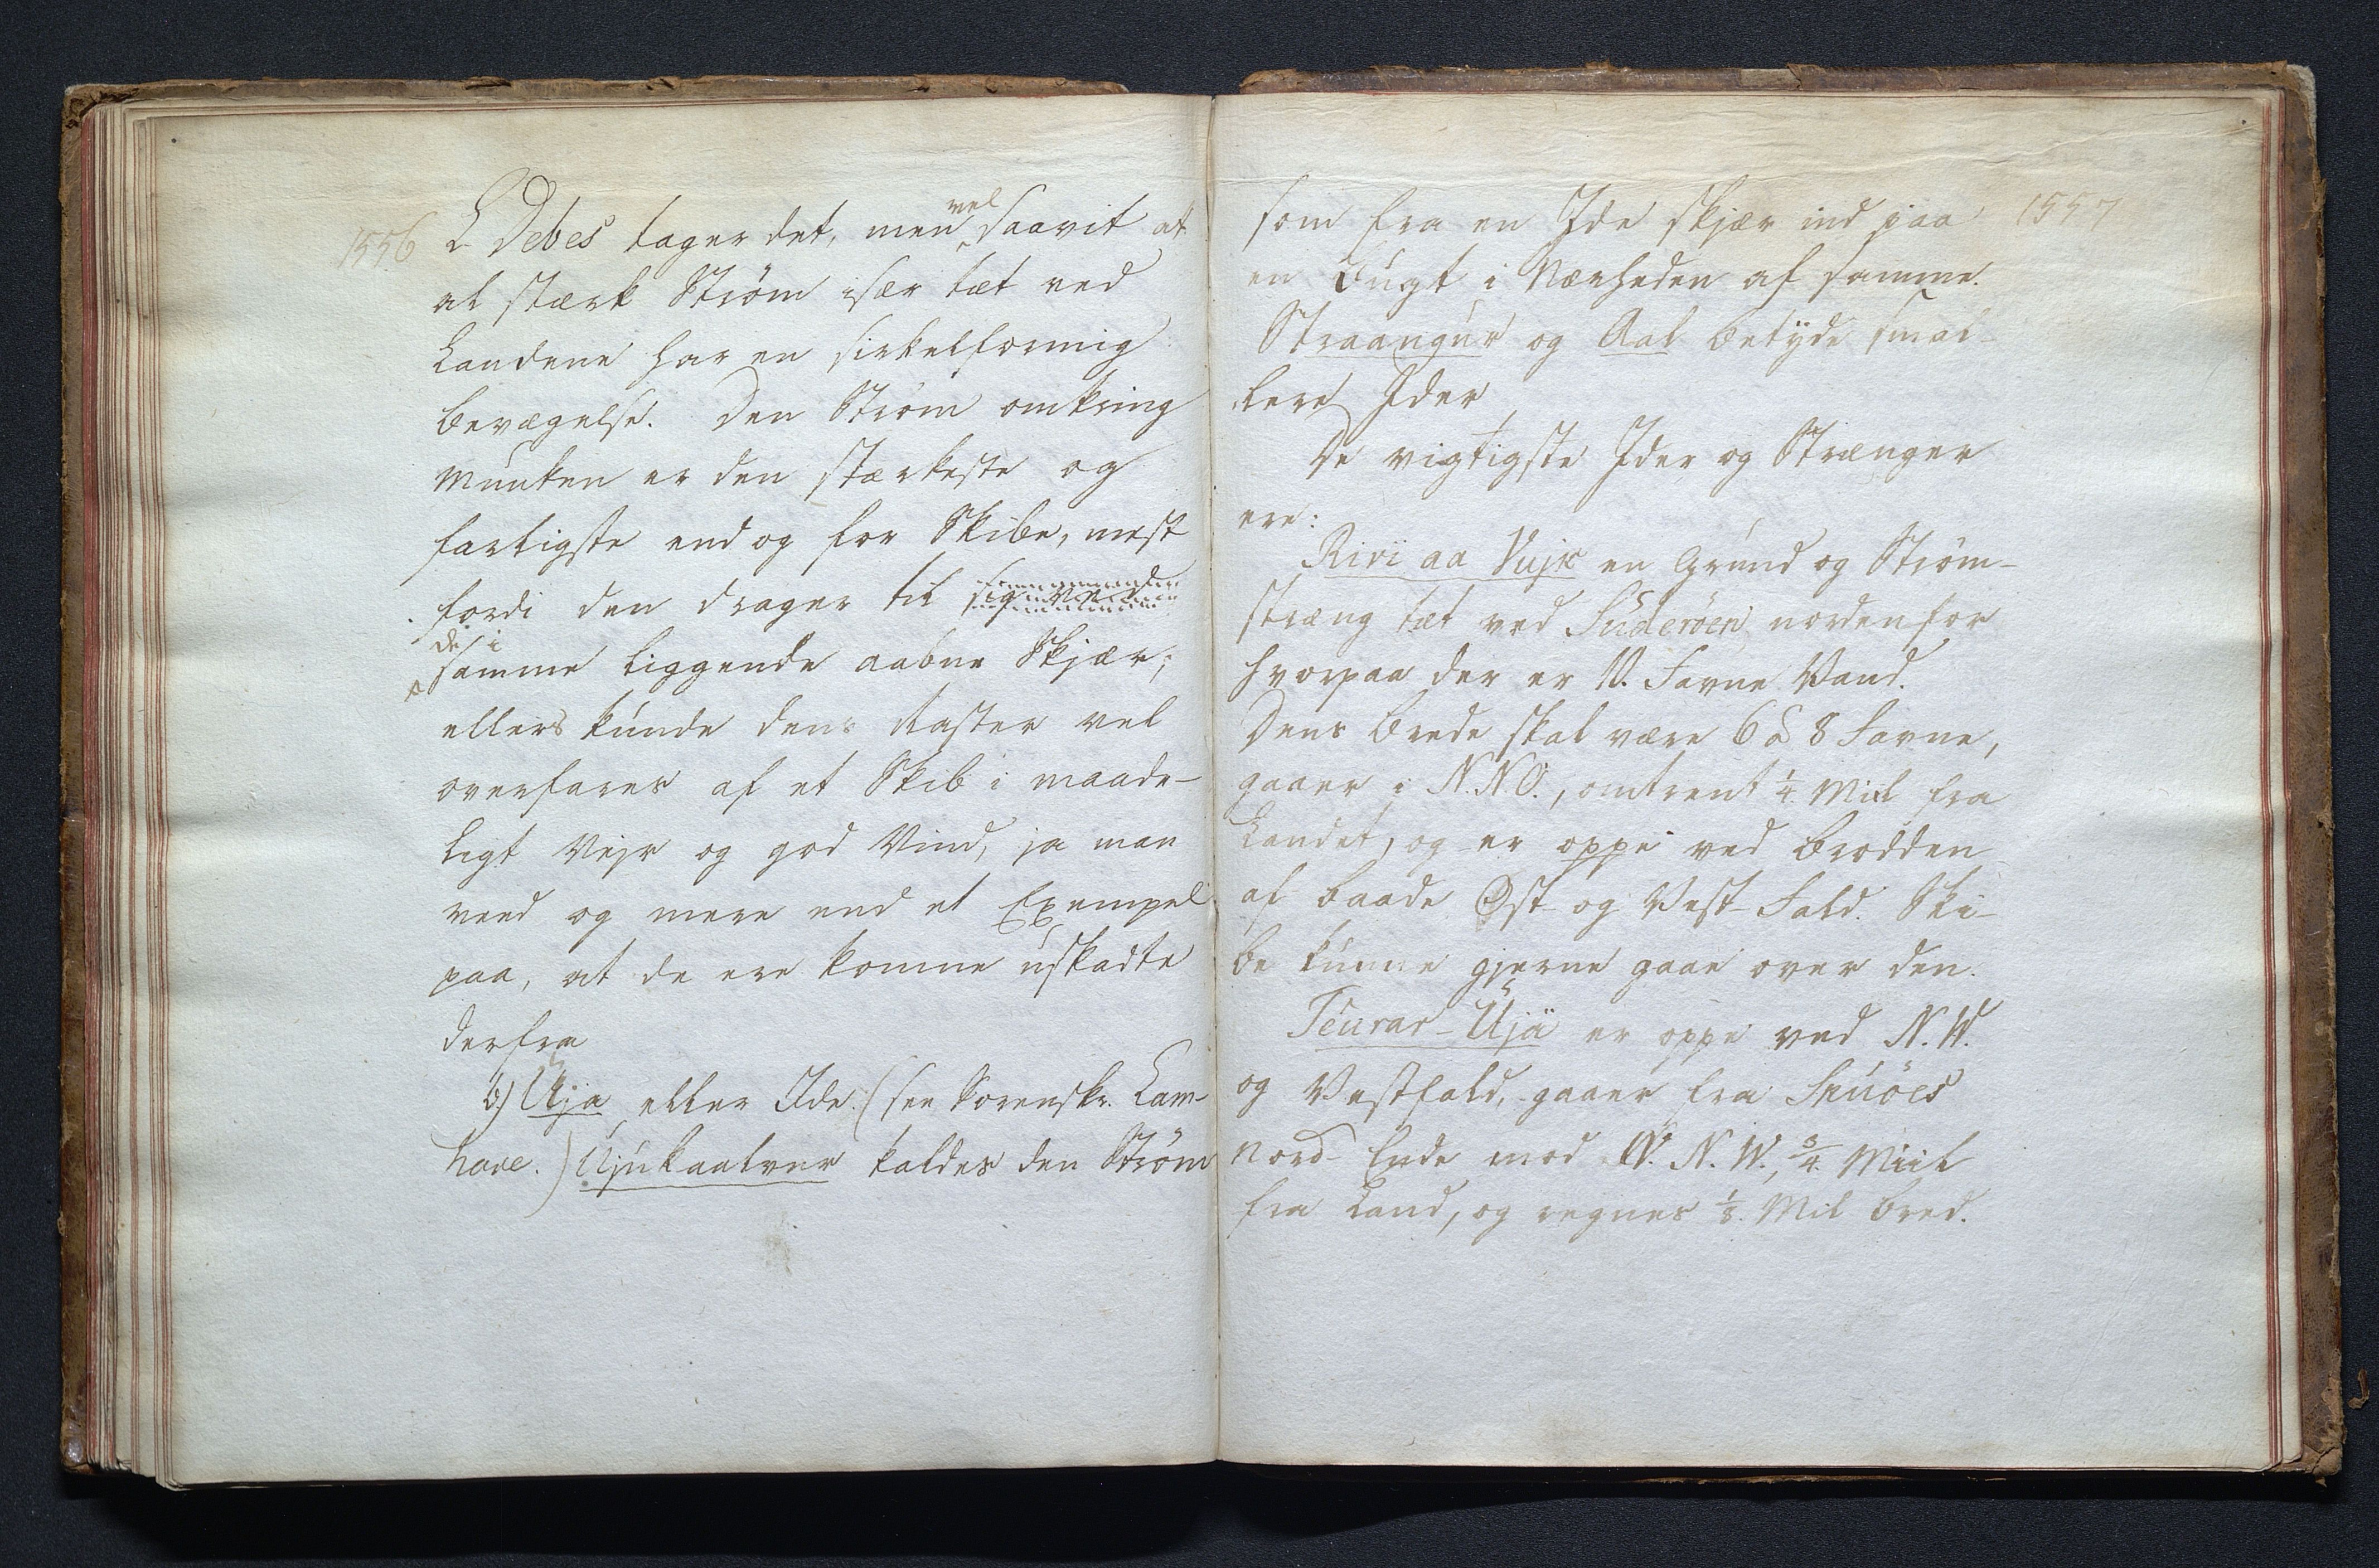 1556 L Debes tager det, men vel saavit at
al stærk Strøm især tæt ved
Landene har en sirkelformig
bevægelse. Den Strøm omkring
Munken er den stærkeste og
farligste endog for Skibe, mest
fordi den drager til sig
de i
samme liggende aabne Skjær;
ellers kunde dens Raster vel
overfares af et Skib i maade-
ligt Vejr og god Vind, ja man
veed og mere end et Exempel
paa, at de ere komne uskadte
derfra
b) Uja eller Ide. (see Sorenskr. Lam-
have.) Ujukaalvur kaldes den Strøm
som fra en Ide skjær ind paa 1557
en Bugt i Nærheden af samme.
Straangur og Aal betyde smal-
lere Ider
De vigtigste Ider og Strænger
ere:
Rivi aa Vujk en Grund og Strøm-
stræng tæt ved Suderöen norden for
hvorpaa der er 10. Favne Vand.
Dens Brede skal være 6 à 8 Favne,
gaaer i N.NO., omtrent 1/4 Mil fra
Landet, og er oppe ved brodden
af baade Øst- og Vest-Fald. Ski-
be kunne gjerne gaae over den.
Teurar-Ujä er oppe ved N.W.
og Vestfald, gaaer fra Skuöes
Nord-Ende mod W. N. W., 3/4 Miil
fra Land, og regnes 1/8. Mil bred.